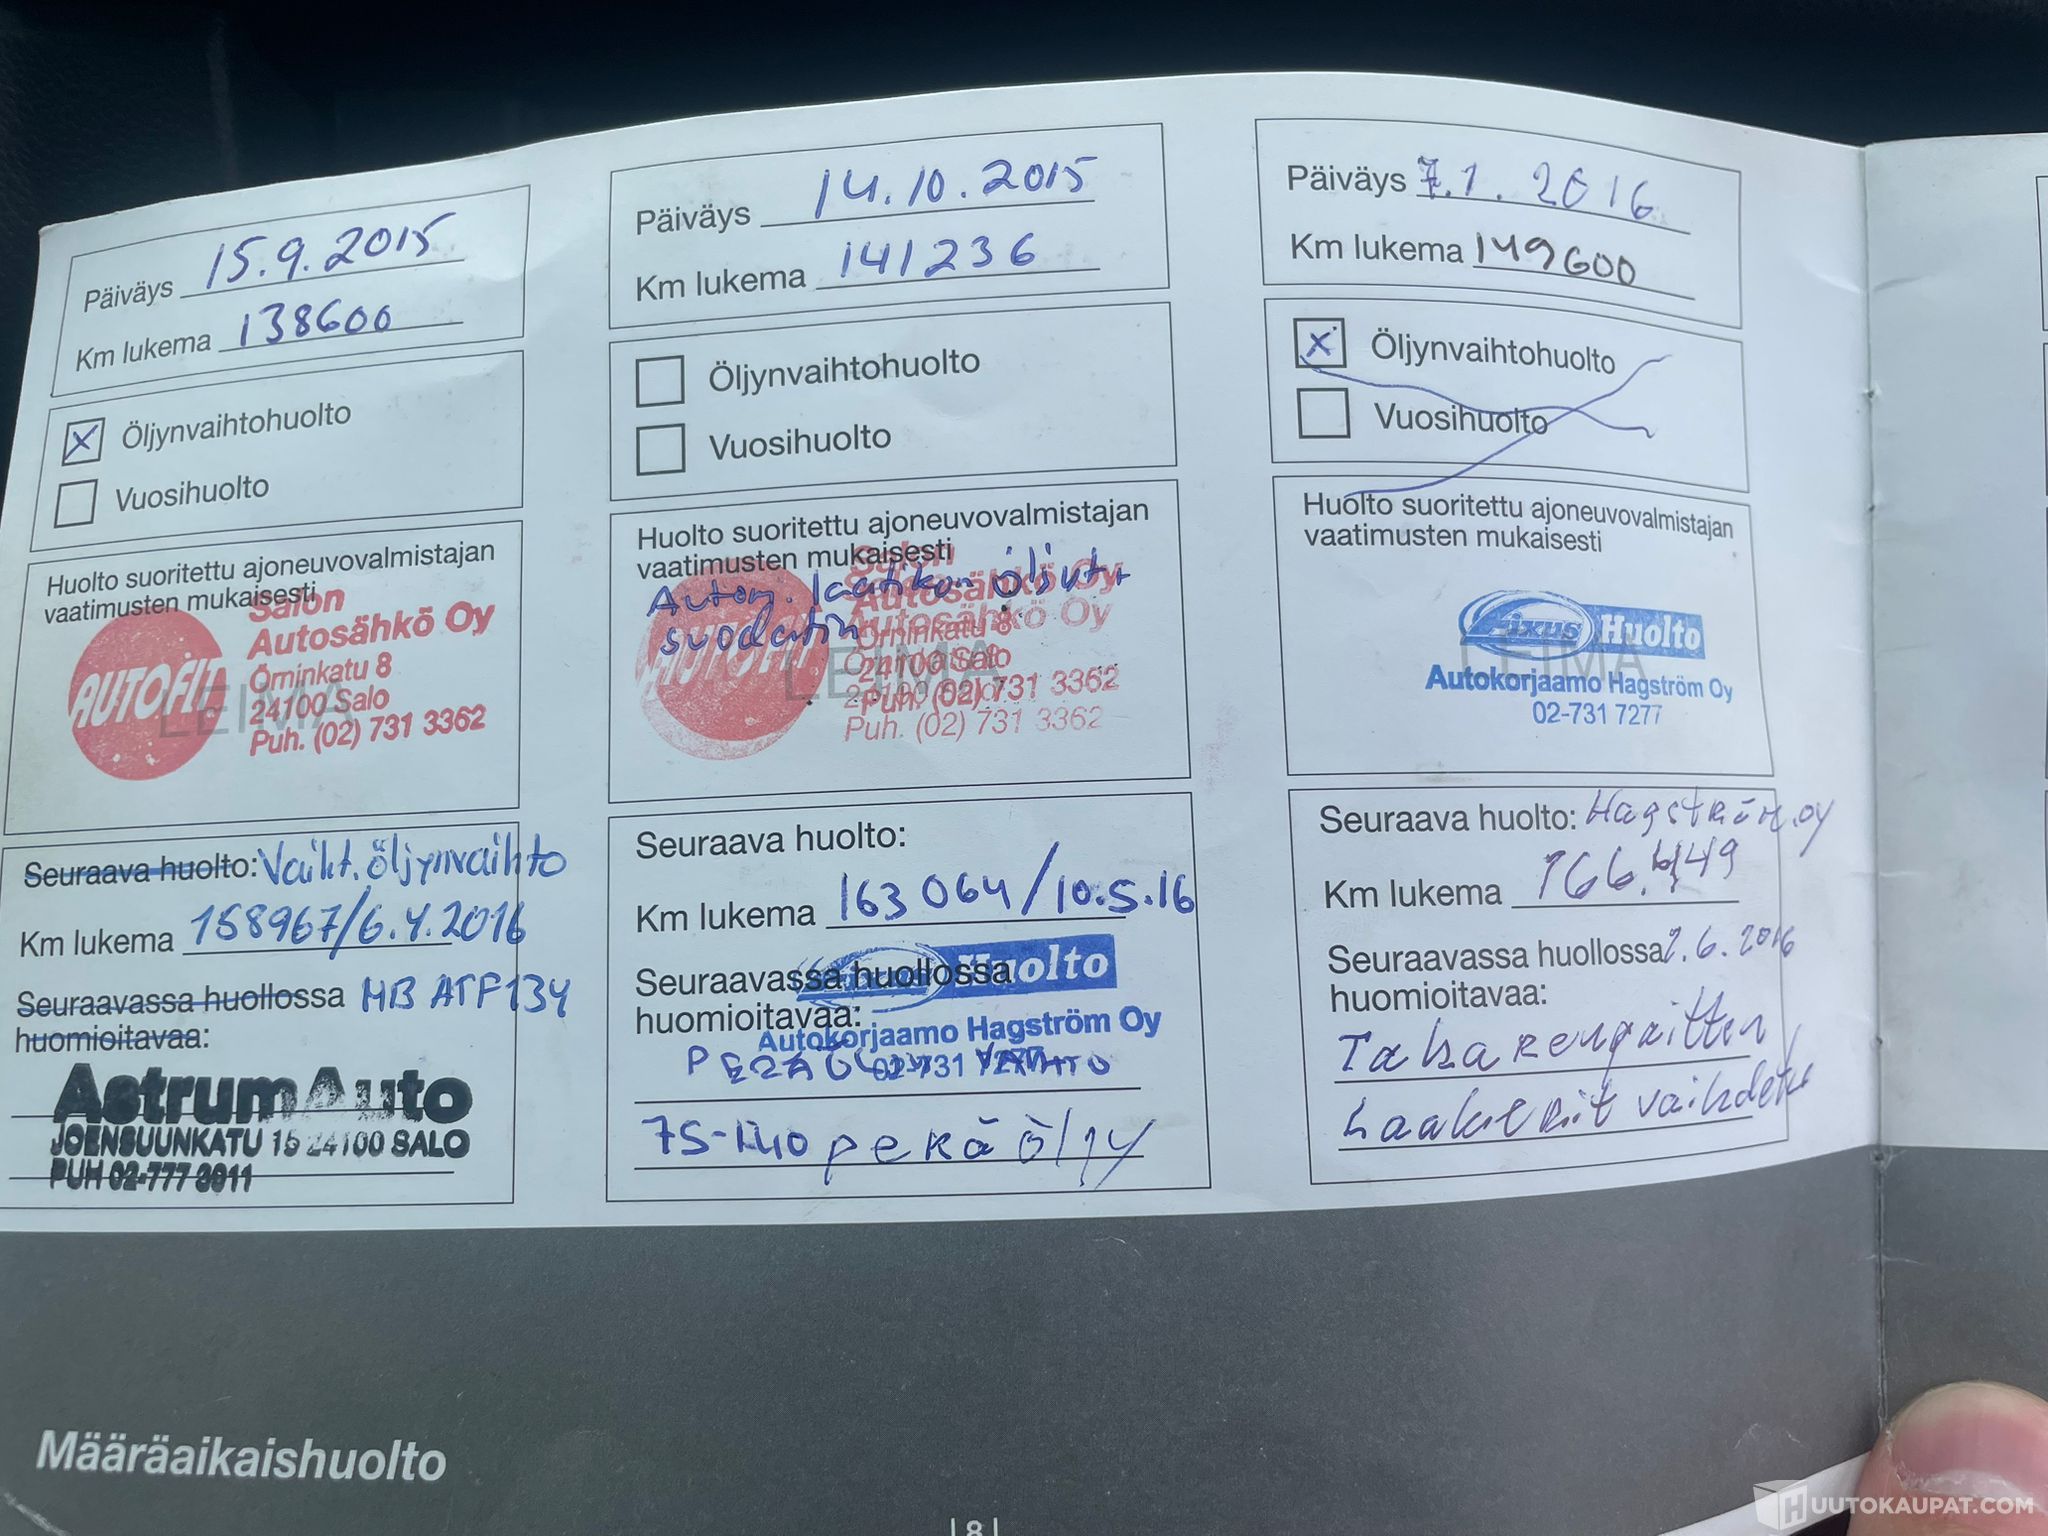 Päiväys 15.9.2015
Km lukema 138600
Öljynvaihtohuolto
Vuosihuolto
Huolto suoritettu ajoneuvovalmistajan
vaatimusten mukaisesti
AUTOFIT
LEIMA
Salon
Autosähkö Oy
Örninkatu 8
24100 Salo
Puh. (02) 731 3362
Seuraava huolto: Vaiht. öljynvaihto
Km lukema 158967/6.4.2016
Seuraavassa huollossa MB ATF134
huomioitavaa:
Astrum Auto
JOENSUUNKATU 15 24100 SALO
PUH 02-777 3911
Päiväys 14.10.2015
Km lukema 141236
Öljynvaihtohuolto
Vuosihuolto
Huolto suoritettu ajoneuvovalmistajan
vaatimusten mukaisesti
Autom. laatikon öljyt +
suodatin
AUTOFIT
LEIMA
Salon
Autosähkö Oy
Örninkatu 8
24100 Salo
Puh. (02) 731 3362
Seuraava huolto:
Km lukema 163064/10.5.16
Seuraavassa huollossa
huomioitavaa:
Fixus Huolto
Autokorjaamo Hagström Oy
02-731 7277
PERÄÖLJYN VAIHTO
75-140 perä öljy
Päiväys 7.1.2016
Km lukema 149600
x Öljynvaihtohuolto
Vuosihuolto
Huolto suoritettu ajoneuvovalmistajan
vaatimusten mukaisesti
Fixus Huolto
LEIMA
Autokorjaamo Hagström Oy
02-731 7277
Seuraava huolto: Hagström.oy
Km lukema
Seuraavassa huollossa 2.6.2016
huomioitavaa:
Takarengaitten
Laakerit vaihdettu
Määräaikaishuolto
| 8 |
HUUTOKAUPAT.COM